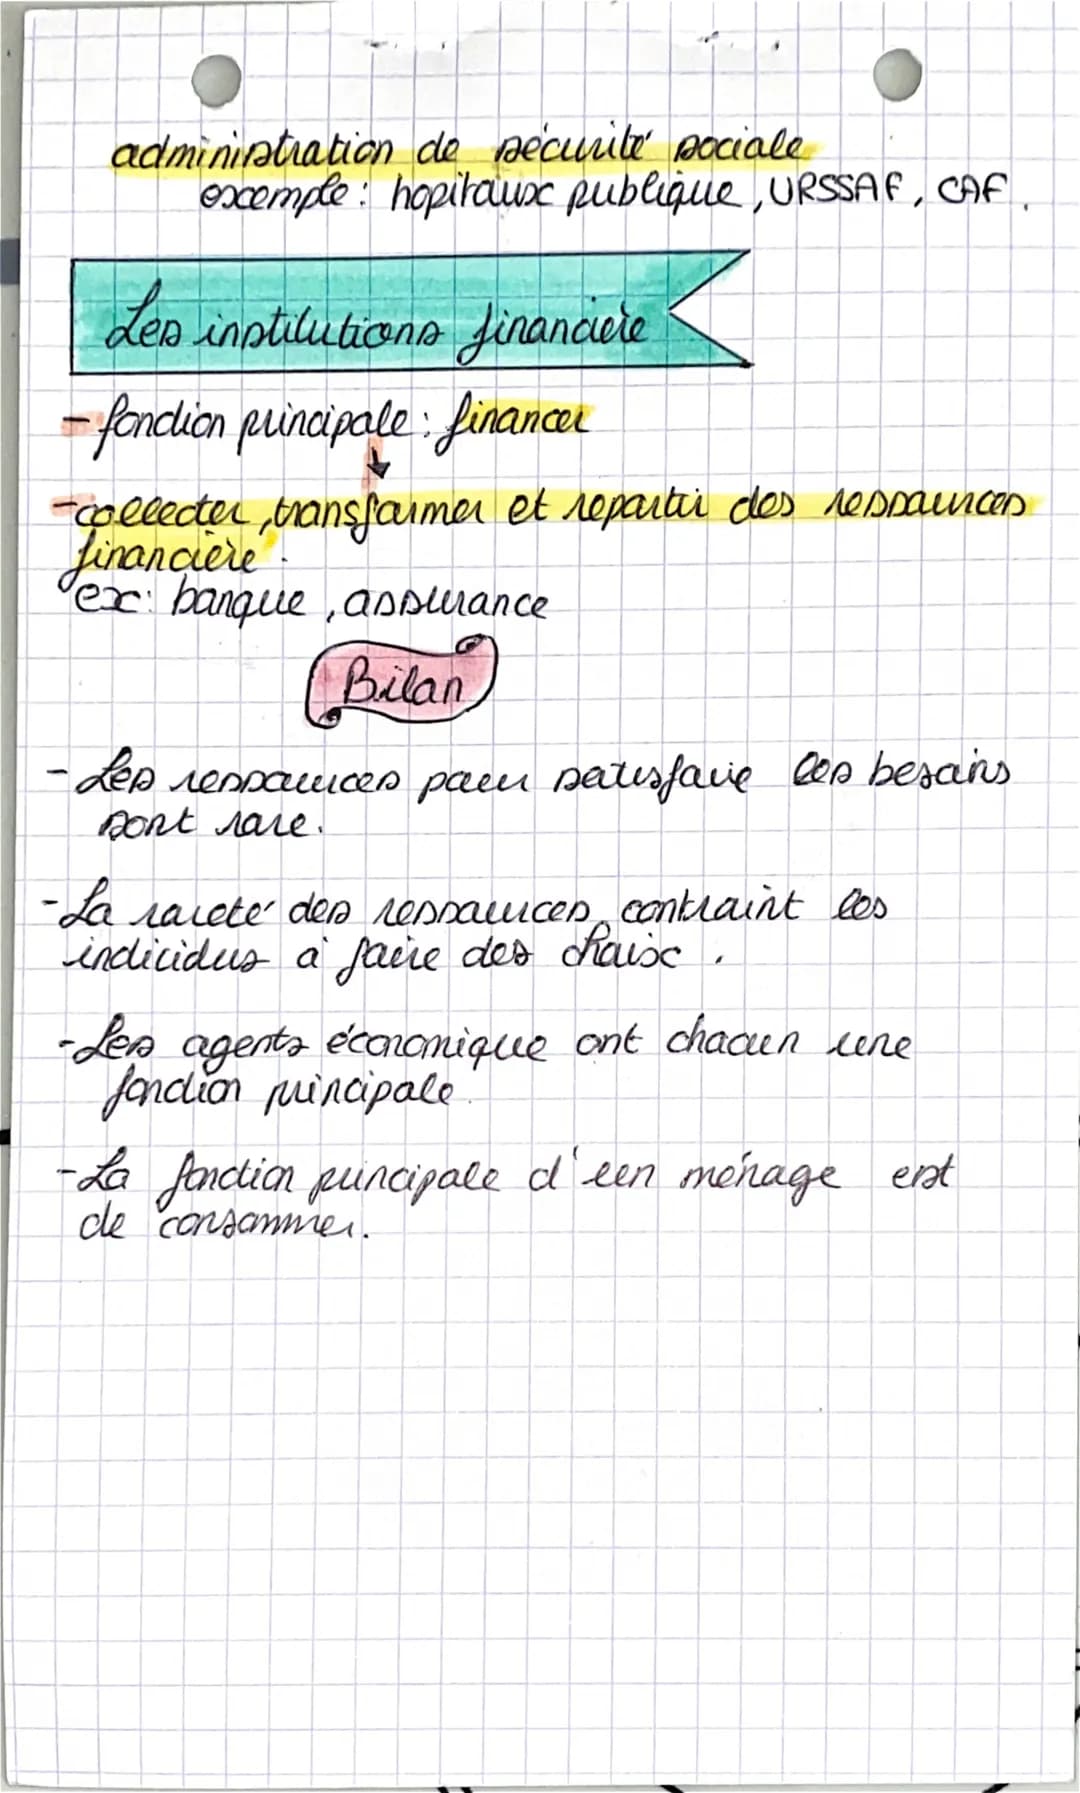 administration de sécurité sociale
exemple : hopitaux publique, URSSAF, CAF.
Les institutions financière
- fonction principale : financer
- collecter, transformer et repartir des ressources
financière.
ex: banque, assurance
Bilan
- Les ressources pour satisfaire les besoins
sont rare.
- La rareté des ressources contraint les
individus à faire des choix.
- Les agents économique ont chacun une
fonction principale.
- La fonction principale d'un ménage est
de consommer.